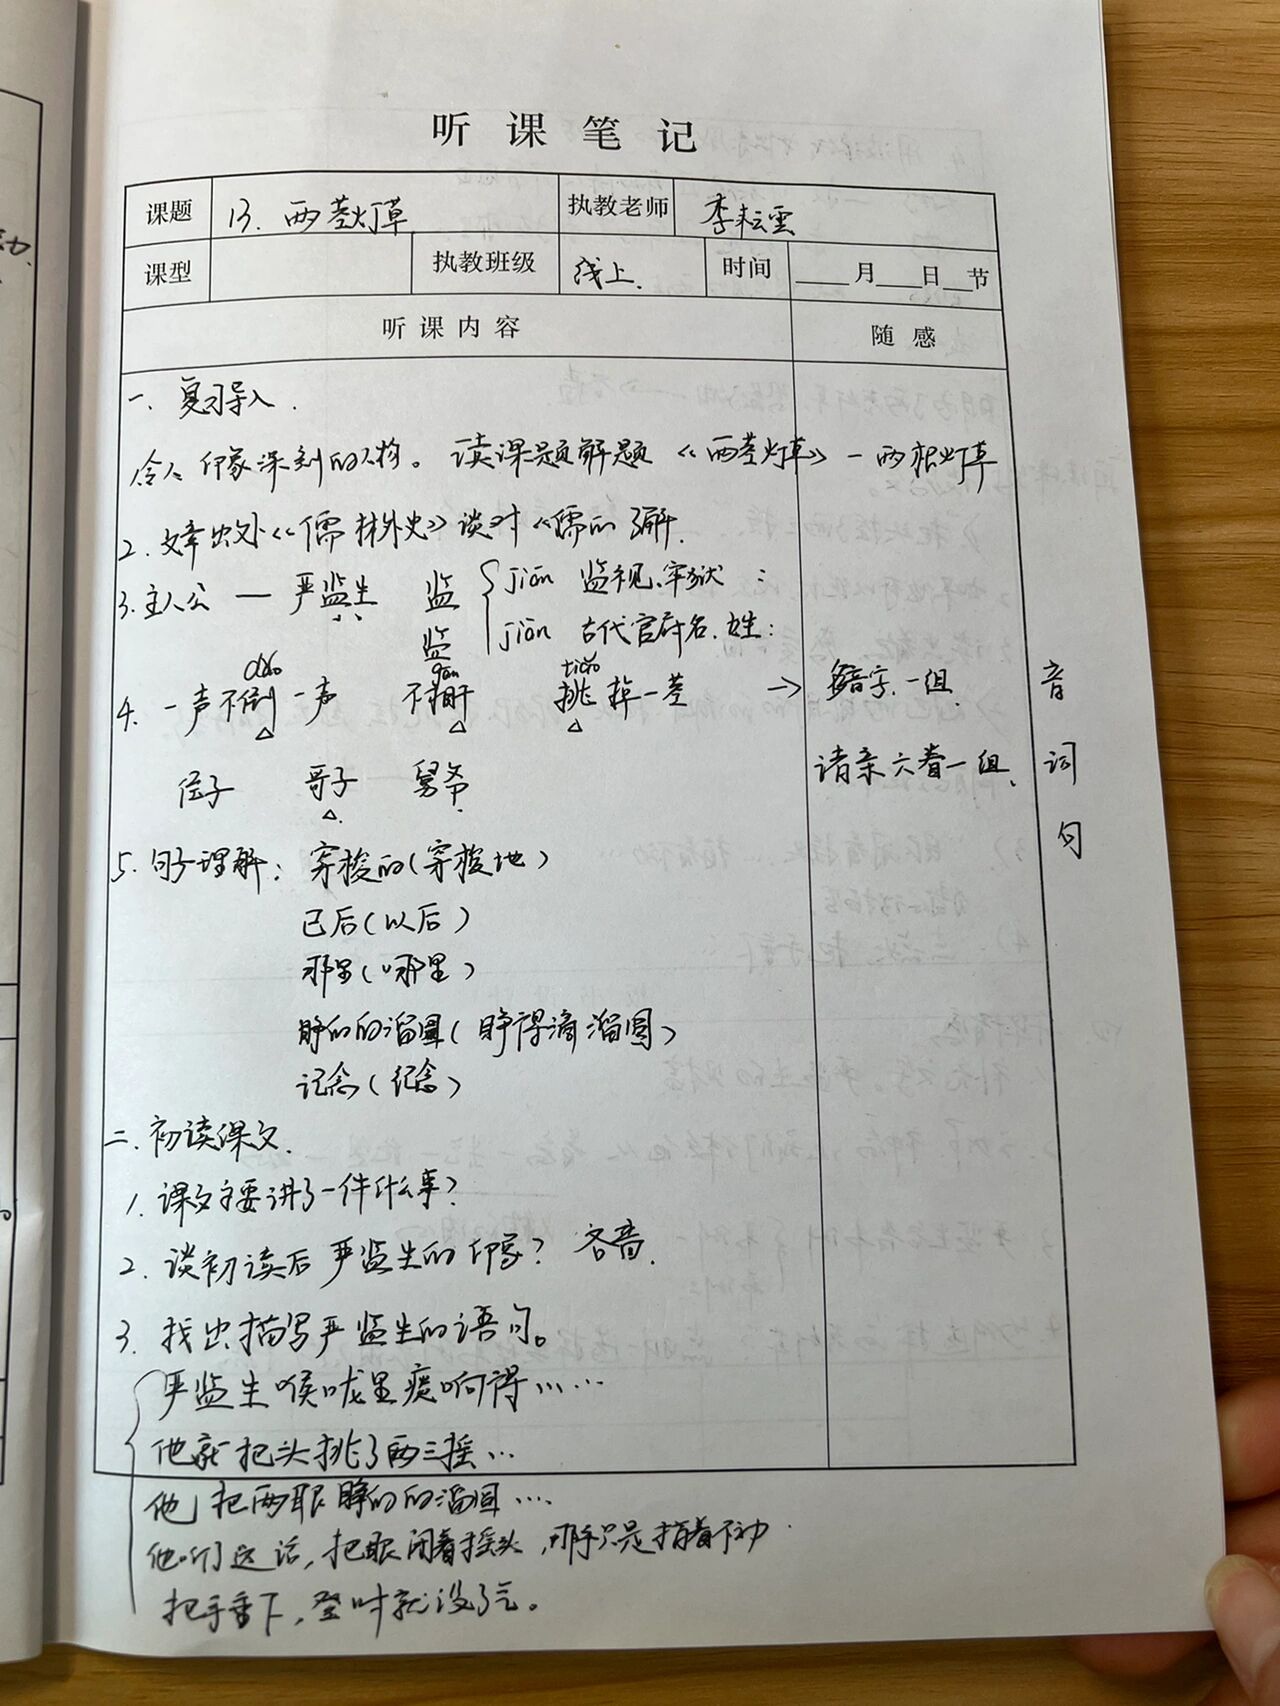 听课笔记
课题 13. 两茎灯草 执教老师 李耘雲
课型 执教班级 线上. 时间 ____月___日__节
听课内容 随感
一、复习导入.
令人印象深刻的人物。读课题解题《两茎灯草》一两根灯草
2. 文章出处《儒林外史》谈对《儒的了解.
3. 主人公 — 严监生 监 jiān 监视、牢狱:
监 jiàn 古代官府名、姓:
dǎo gān tiǎo
4. 一声不倒一声 不相干 挑掉一茎 → 多音字一组 音
侄子 哥子 舅爷 诸亲六眷一组、 词
句
5. 句子理解: 穿梭的(穿梭地)
已后(以后)
那里(哪里)
睁的的溜圆(睁得滴溜圆)
记念(纪念)
二、初读课文.
1. 课文主要讲了一件什么事?
2. 谈初读后严监生的印象? 吝啬.
3. 找出描写严监生的语句。
严监生喉咙里痰响得……
他就把头摇了两三摇…
他把两眼睁的的溜圆…
他听了这话,把眼闭着摇头,那手只是指着不动.
把手垂下,登时就没了气。